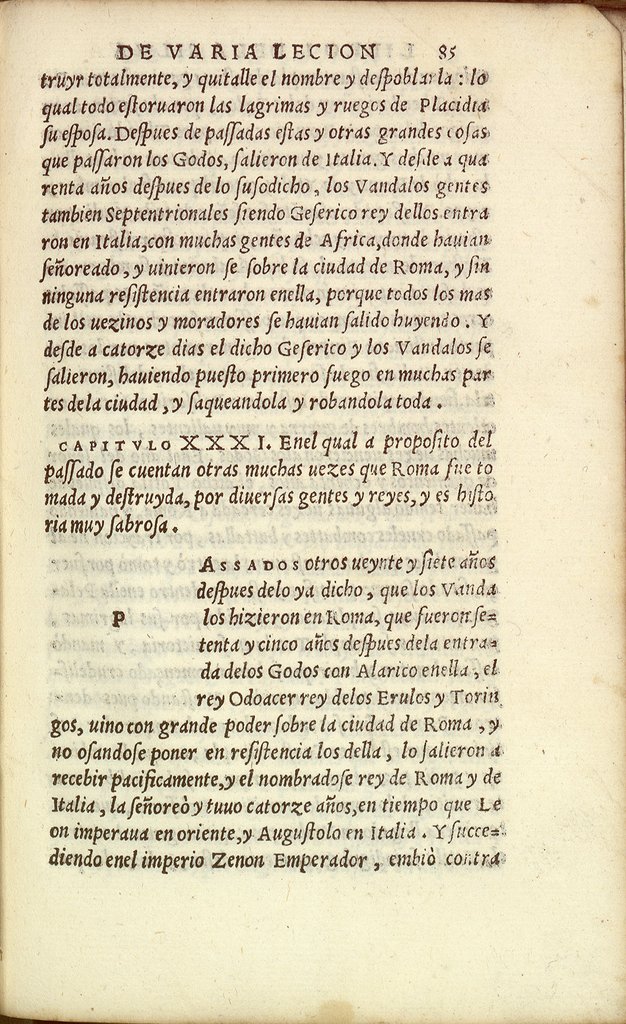 DE VARIA LECION 85
truyr totalmente, y quitalle el nombre y despoblarla : lo
qual todo estoruaron las lagrimas y ruegos de Placidia
su esposa. Despues de passadas estas y otras grandes cosas
que passaron los Godos, salieron de Italia. Y desde a qua
renta años despues de lo susodicho, los Vandalos gentes
tambien Septentrionales siendo Geserico rey dellos entra
ron en Italia, con muchas gentes de Africa, donde hauian
señoreado, y uinieron se sobre la ciudad de Roma, y sin
ninguna resistencia entraron enella, porque todos los mas
de los uezinos y moradores se hauian salido huyendo. Y
desde a catorze dias el dicho Geserico y los Vandalos se
salieron, hauiendo puesto primero fuego en muchas par
tes de la ciudad, y saqueandola y robandola toda.
CAPITVLO XXXI. Enel qual a proposito del
passado se cuentan otras muchas uezes que Roma fue to
mada y destruyda, por diuersas gentes y reyes, y es histo
ria muy sabrosa.
PASSADOS otros ueynte y siete años
despues delo ya dicho, que los Vanda
los hizieron en Roma, que fueron se=
tenta y cinco años despues dela entra=
da delos Godos con Alarico enella, el
rey Odoacer rey delos Erulos y Torin
gos, uino con grande poder sobre la ciudad de Roma, y
no osandose poner en resistencia los della, lo salieron a
recebir pacificamente, y el nombradose rey de Roma y de
Italia, la señoreò y tuuo catorze años, en tiempo que Le
on imperaua en oriente, y Augustolo en Italia. Y succe=
diendo enel imperio Zenon Emperador, embiò contra